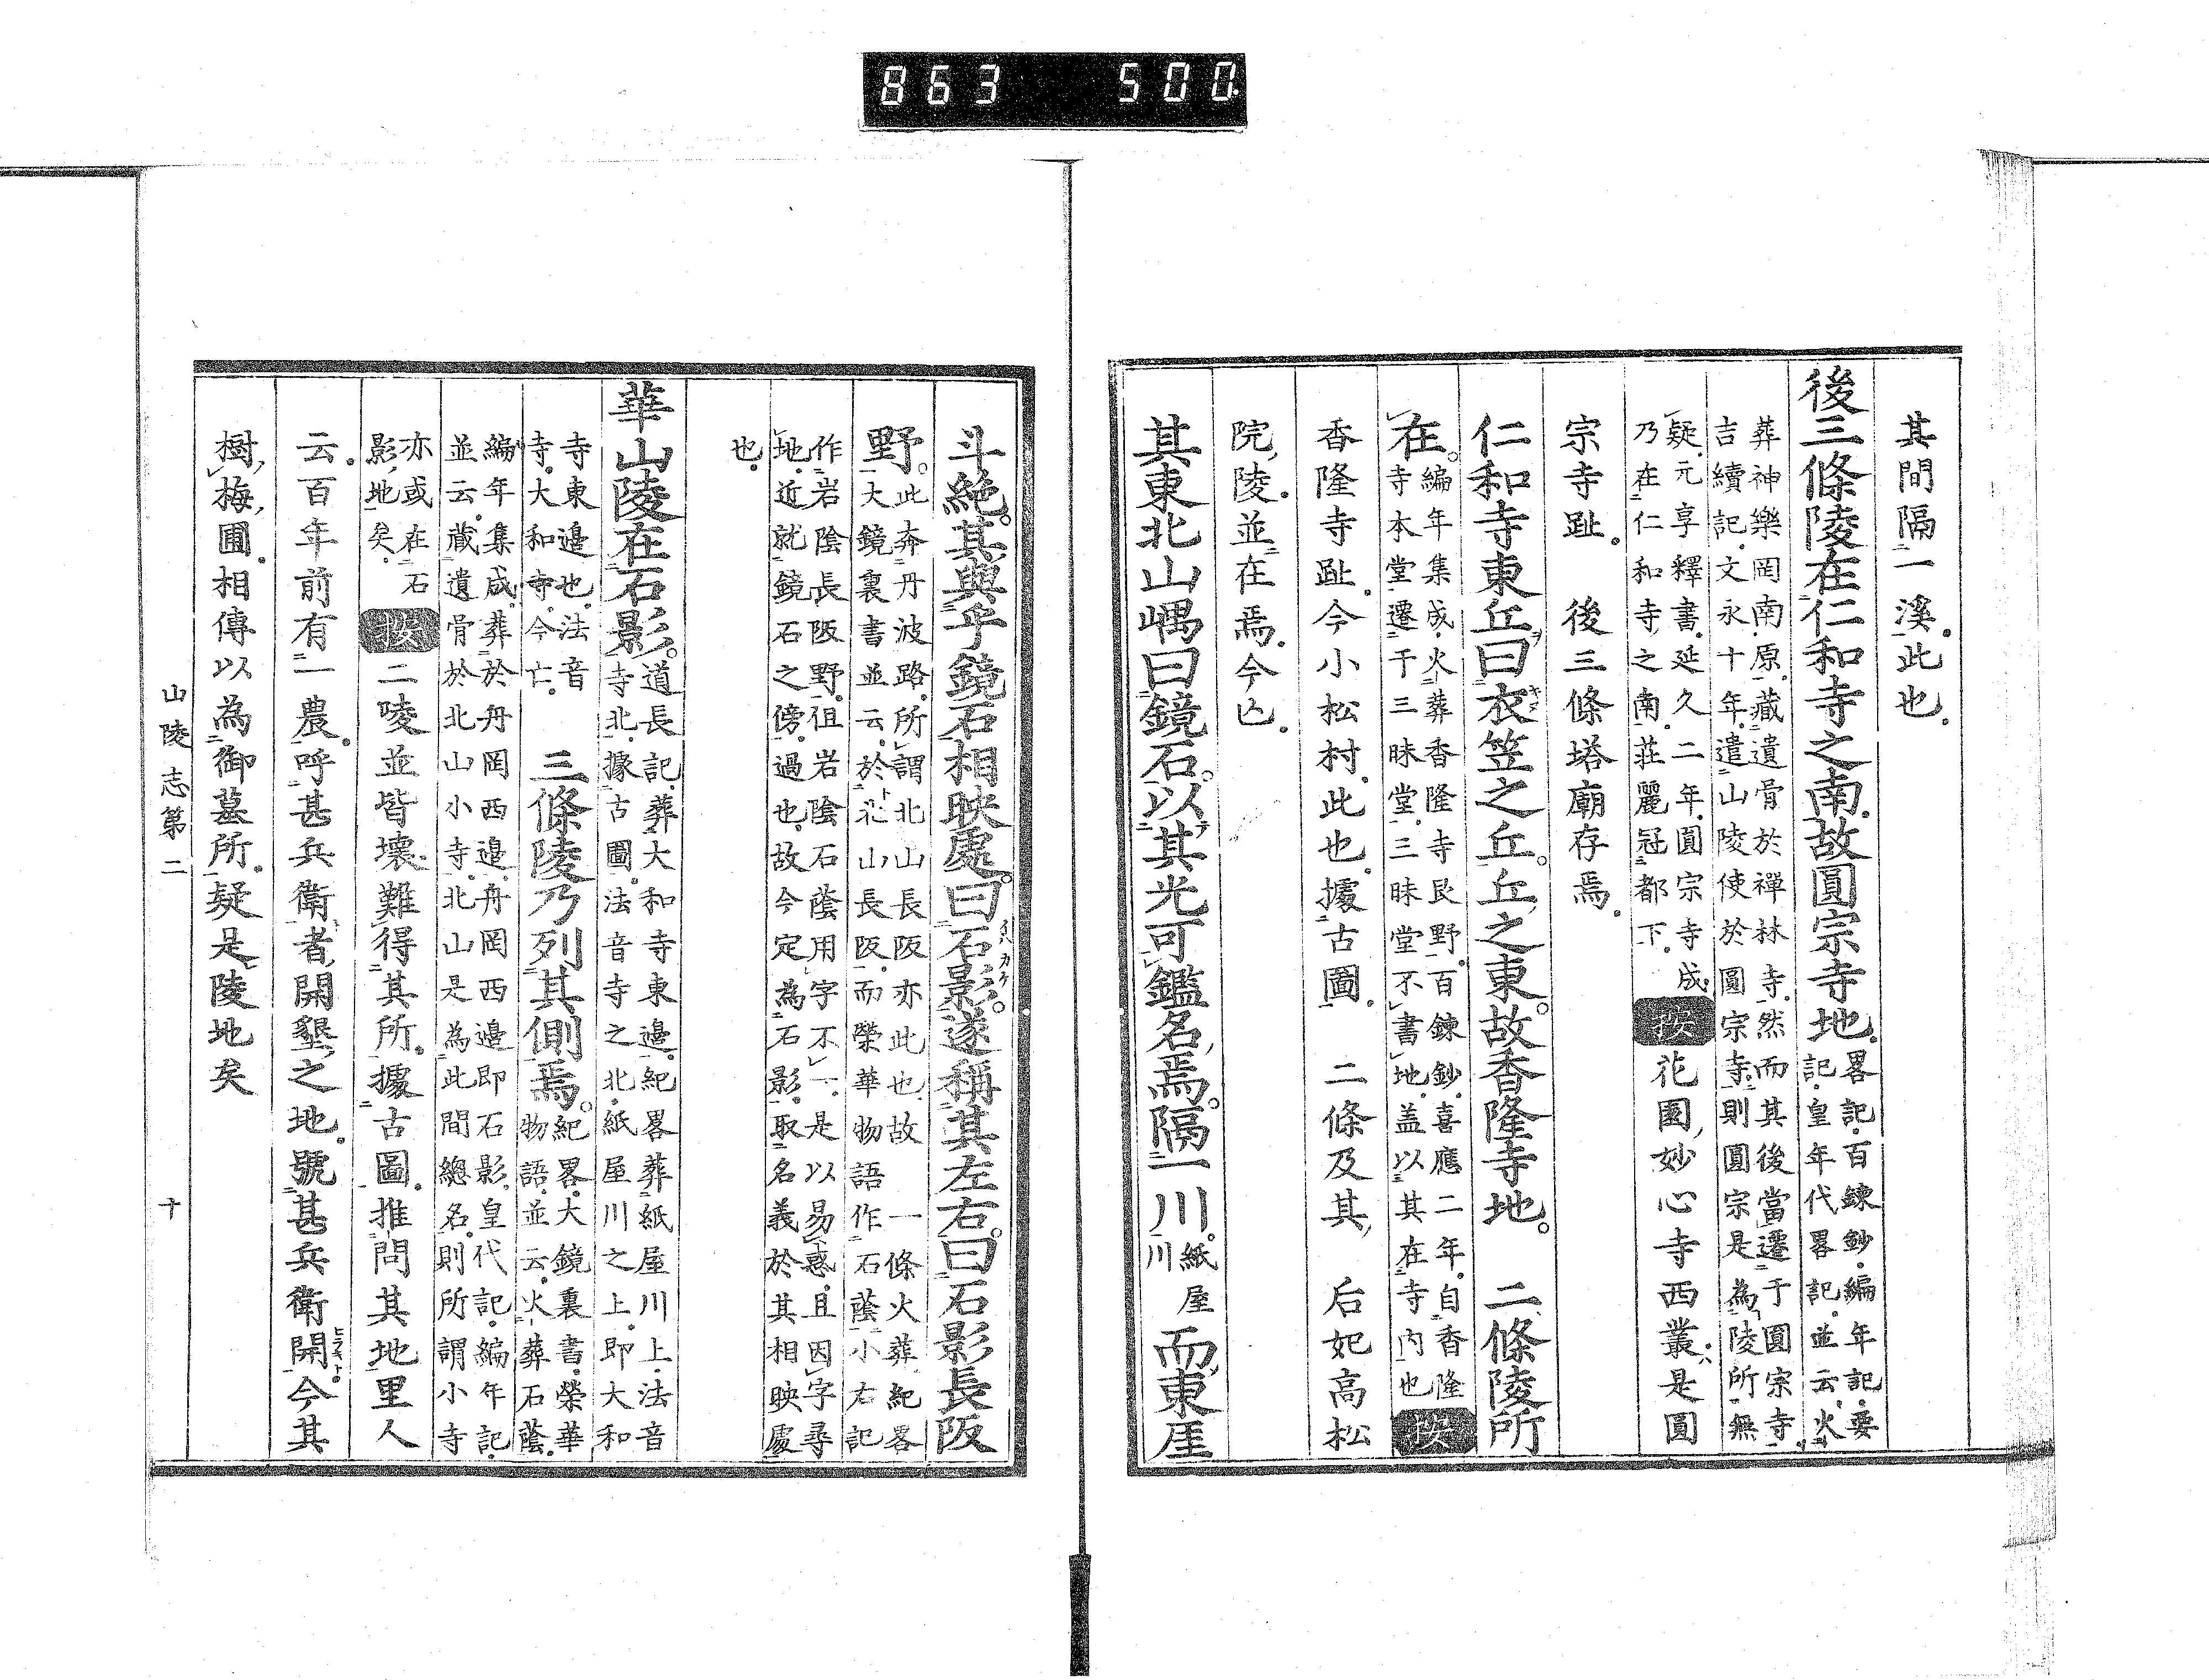 863 500.
其間隔一溪此也
後三條陵在仁和寺之南故圓宗寺地畧記百鍊鈔編年記要
記皇年代畧記並云火
葬神樂岡南原藏遺骨於禪林寺然而其後當遷于圓宗寺
吉續記文永十年遣山陵使於圓宗寺則圓宗是為陵所無
疑元亨釋書延久二年圓宗寺成
乃在仁和寺之南莊麗冠都下 按花園妙心寺西叢是圓
宗寺趾 後三條塔廟存焉
仁和寺東丘曰衣笠之丘丘之東故香隆寺地 二條陵所
在編年集成火葬香隆寺艮野百鍊鈔喜應二年自香隆
寺本堂遷于三昧堂三昧堂不書地盖以其在寺内也 按
香隆寺趾今小松村此也據古圖 二條及其 后妃高松
院陵並在焉今亾
其東北山嵎曰鏡石以其光可鑑名焉隔一川紙屋川而東厓
斗絶其與乎鏡石相映處曰石影遂稱其左右曰石影長阪
野此奔丹波路所謂北山長阪亦此也故 一條火葬紀畧
大鏡裏書並云於北山長阪而榮華物語作石蔭小右記
作岩陰長阪野但岩陰石蔭用字不一是以易惑且因字尋
地近就鏡石之傍過也故今定為石影取名義於其相映處
也
華山陵在石影道長記葬大和寺東邊紀畧葬紙屋川上法音
寺北據古圖法音寺之北紙屋川之上即大和
寺東邊也法音
寺大和寺今亡 三條陵乃列其側焉紀畧大鏡裏書榮華
物語並云火葬石蔭
編年集成葬於丹岡西邊丹岡西邊即石影皇代記編年記
並云藏遺骨於北山小寺北山是為此間總名則所謂小寺
亦或在石
影地矣 按二陵並皆壞難得其所據古圖推問其地里人
云百年前有一農呼甚兵衛者開墾之地號甚兵衛開今其
樹梅圃相傳以為御墓所疑是陵地矣
山陵志第二 十